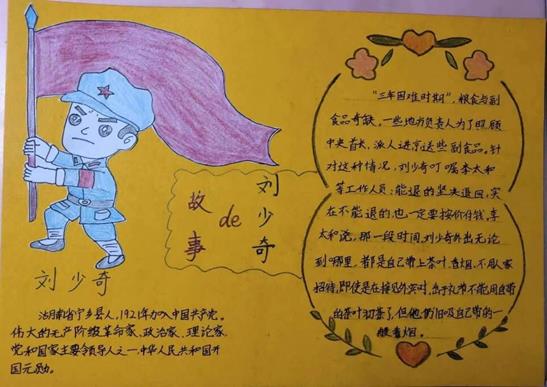 刘少奇
湖南省宁乡县人,1921年加入中国共产党。
伟大的无产阶级革命家、政治家、理论家,
党和国家主要领导人之一,中华人民共和国开
国元勋。
刘少奇
de
故事
"三年困难时期",粮食与副
食品奇缺。一些地方负责人为了照顾
中央首长,派人进京送些副食品。针
对这种情况,刘少奇叮嘱李太和
等工作人员:能退的坚决退回,实
在不能退的也一定要按价付钱,李
太和说,那一段时间,刘少奇外出无论
到哪里,都是自己带上茶叶、香烟、不用人家
招待,即使是在接见外宾时,出于礼节不能用自带
的茶叶招
了,但他
自己带的一
般香烟。